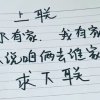 上联
你有家，我有家
说咱俩去谁家
求下联